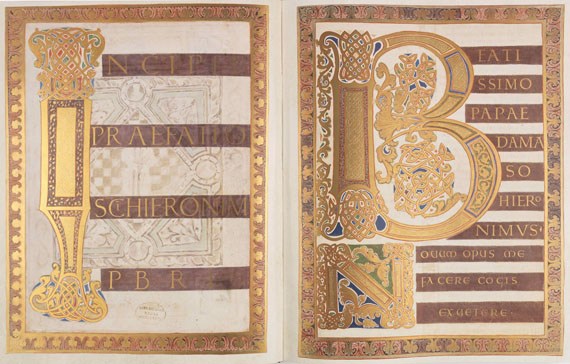 INCIPIT
PRAEFATIO
SCI HIERONIMI
PBR
BEATI
SSIMO
PAPAE
DAMA
SO
HIERO
NIMVS·
NOVUM OPUS ME
FACERE COGIS
EXVETERE·